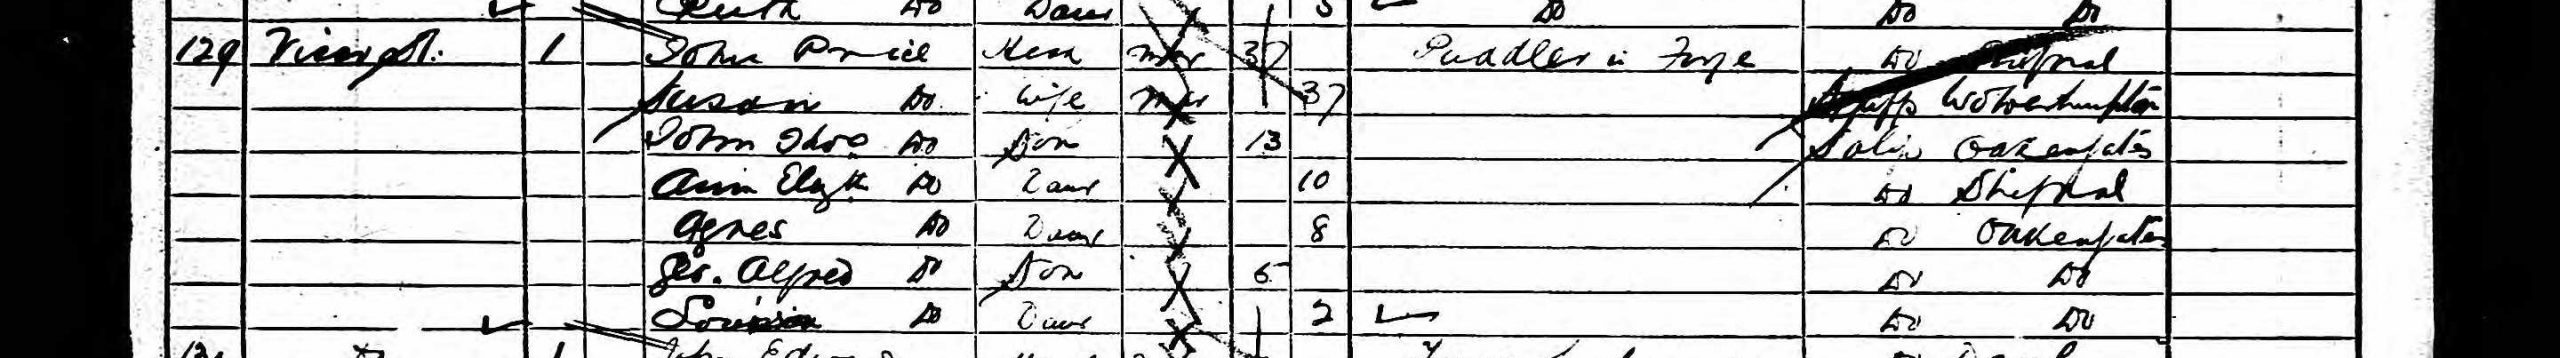 Ruth Do Daur 5 Do Do Do
129 1 John Price Head mar 37 Puddler in Forge Do Shifnal
Susan Do wife mar 37 Staffs Wolverhampton
John Thos Do Son 13 Salip Oakengates
Ann Elizth Do Daur 10 Do Shifnal
Agnes Do Daur 8 Do Oakengates
Geo. Alfred Do Son 5 Do Do
Do Daur 2 Do Do
1